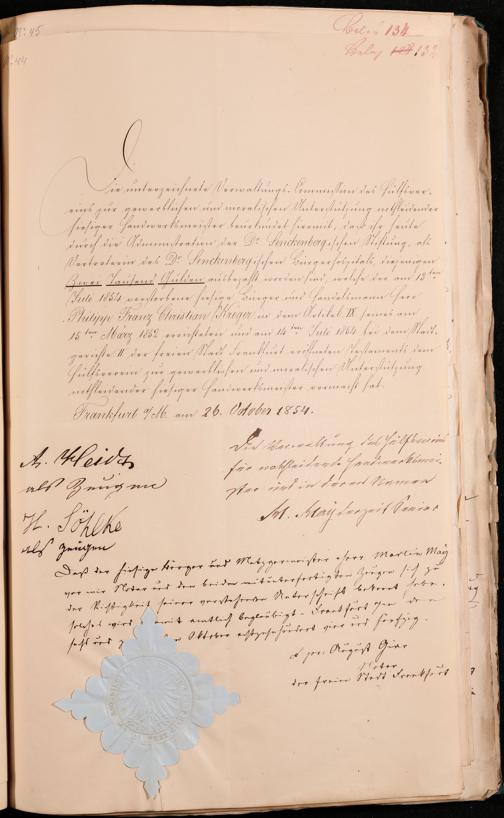 N: 45
N: 44
Beleg 134
Beleg 133
Die unterzeichnete Verwaltungs-Commission des Hülfsver-
eins zur gewerblichen und moralischen Unterstützung nothleidender
hiesiger Handwerksmeister beurkundet hiermit, daß ihr heute
durch die Administration der Dr. Senckenbergischen Stiftung, als
Vertreterin des Dr. Senckenbergischen Bürgerhospitals, diejenigen
Zwei Tausend Gulden ausbezahlt worden sind, welche der am 13ten
Juli 1854 verstorbene hiesige Bürger und Handelsmann Herr
Philipp Franz Christian Kröger in dem Artikel IX seines am
15ten März 1852 errichteten und am 14ten Juli 1854 bei dem Stadt-
gerichte II der freien Stadt Frankfurt eröffneten Testaments dem
Hülfsverein zu gewerblichen und moralischen Unterstützung
nothleidender hiesiger Handwerksmeister vermacht hat.
Frankfurt a/M. am 26. October 1854.
Die Verwaltung des Hülfsvereins
für nothleidende Handwerksmei-
ster und in deren Namen
A. Heid
als Zeugen
H. Söhlke
als Zeugen
May derzeit Senior
Daß der hiesige Bürger und Metzgermeister Herr Martin May
vor mir Notar und den beiden mitunterfertigten Zeugen sich zu
der Richtigkeit seiner vorstehenden Unterschrift bekannt habe,
solches wird hiermit amtlich beglaubigt. Frankfurt den
sechs und Oktober achtzehnhundert vier und fünfzig.
August
Notar
der freien Stadt Frankfurt